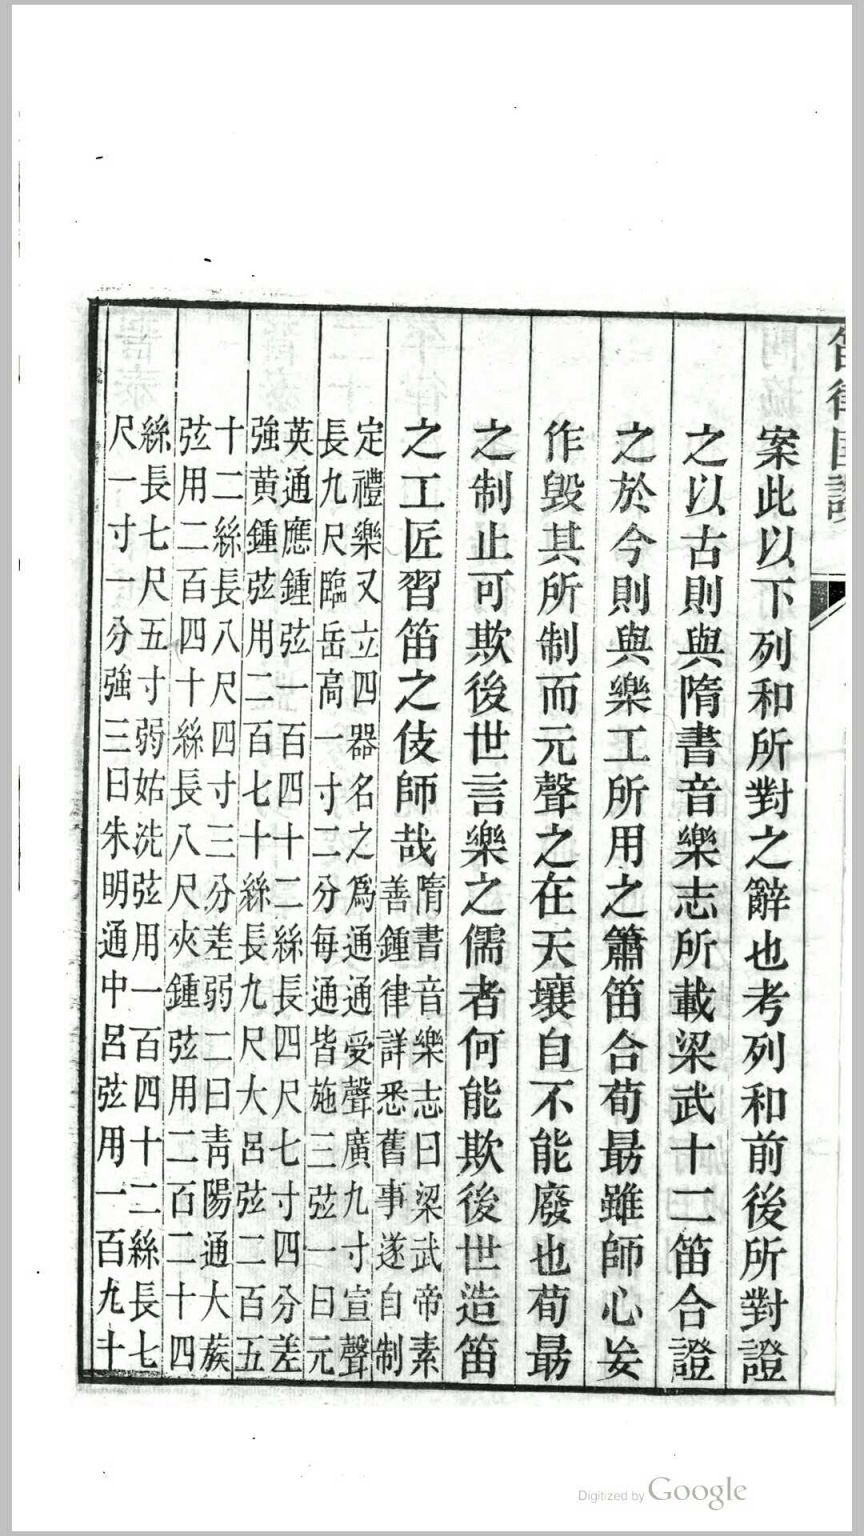 案此以下列和所對之辭也考列和前後所對證
之以古則與隋書音樂志所載梁武十二笛合證
之於今則與樂工所用之簫笛合荀勗雖師心妄
作毀其所制而元聲之在天壤自不能廢也荀勗
之制止可欺後世言樂之儒者何能欺後世造笛
之工匠習笛之伎師哉
隋書音樂志曰梁武帝素
善鍾律詳悉舊事遂自制
定禮樂又立四器名之爲通通受聲廣九寸宣聲
長九尺臨岳高一寸二分每通皆施三弦一曰元
英通應鍾弦一百四十二絲長四尺七寸四分差
強黃鍾弦用二百七十絲長九尺大呂弦二百五
十二絲長八尺四寸三分差弱二曰靑陽通大蔟
弦用二百四十絲長八尺夾鍾弦用二百二十四
絲長七尺五寸弱姑洗弦用一百四十二絲長七
尺一寸一分強三曰朱明通中呂弦用一百九十
Digitized by Google